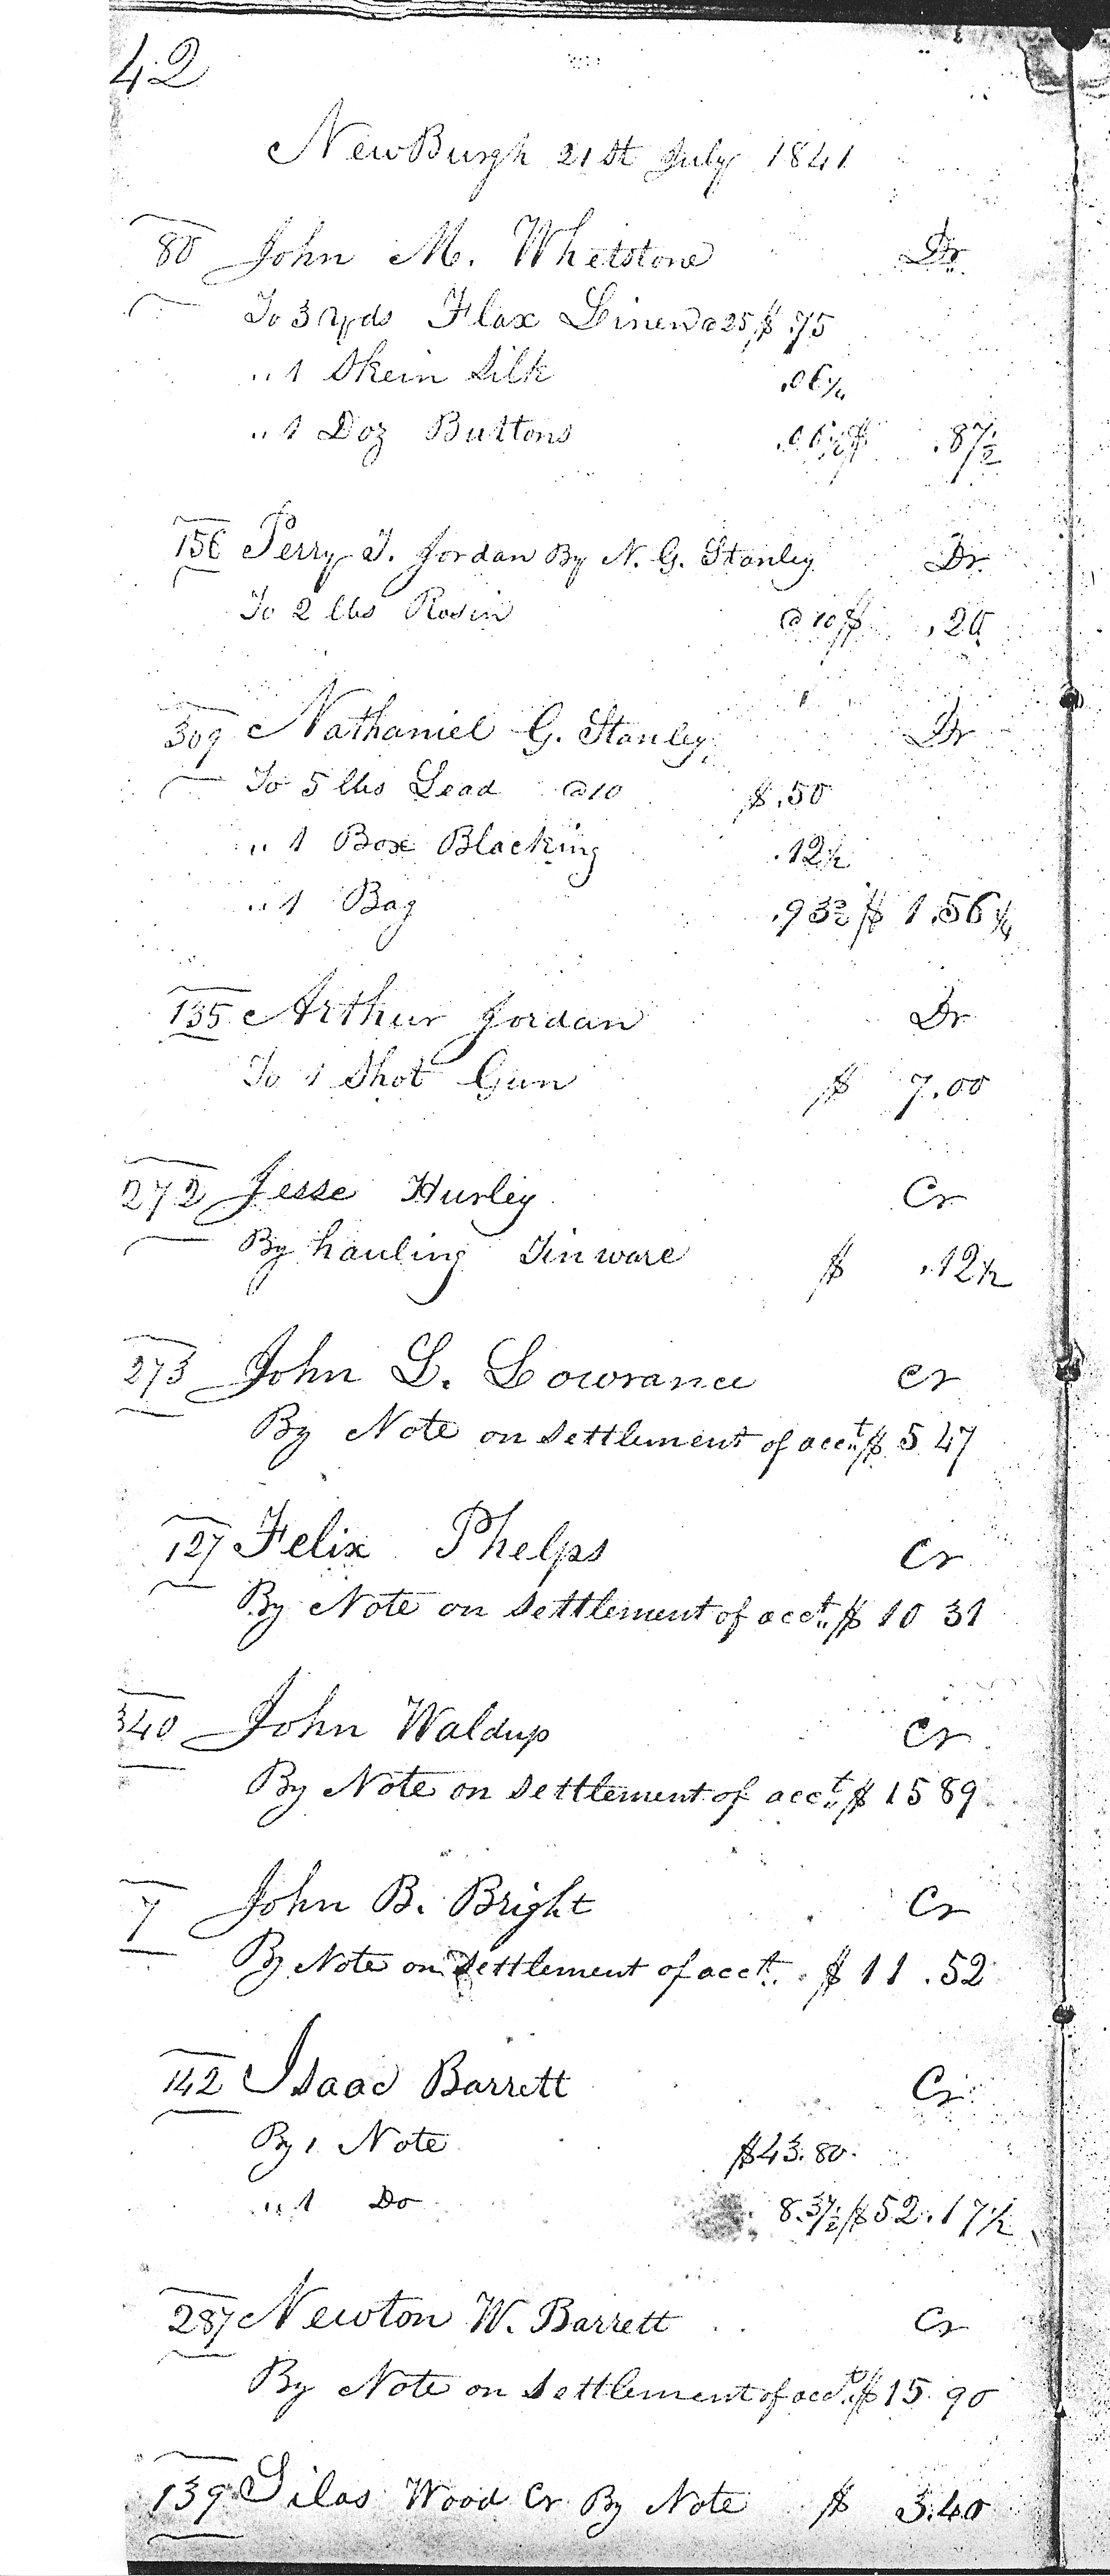 42
NewBurgh 21st July 1841
80 John M. Whetstone Dr
To 3 Yds Flax Linen @ 25 $ .75
" 1 Skein Silk .06¼
" 1 Doz Buttons .06¼ $ .87½
156 Perry T. Jordan By N. G. Stanley Dr
To 2 lbs Rosin @ 10 $ .20
309 Nathaniel G. Stanley Dr
To 5 lbs Lead @10 $ .50
" 1 Box Blacking .12½
" 1 Bag $ 1.56¼
135 Arthur Jordan Dr
To 1 Shot Gun $ 7.00
272 Jesse Hurley Cr
By hauling Tinware $ .12½
273 John L. Lowrance Cr
By Note on Settlement of acct $ 5 47
127 Felix Phelps Cr
By Note on Settlement of acct $ 10 31
340 John Waldup Cr
By Note on Settlement of acct $ 15 89
7 John B. Bright Cr
By Note on Settlement of acct. $ 11.52
142 Isaac Barrett Cr
By 1 Note $43.80
" 1 Do 8.37½ $52.17½
287 Newton W. Barrett Cr
By Note on Settlement of acct $15.90
139 Silas Wood Cr By Note $ 3.40